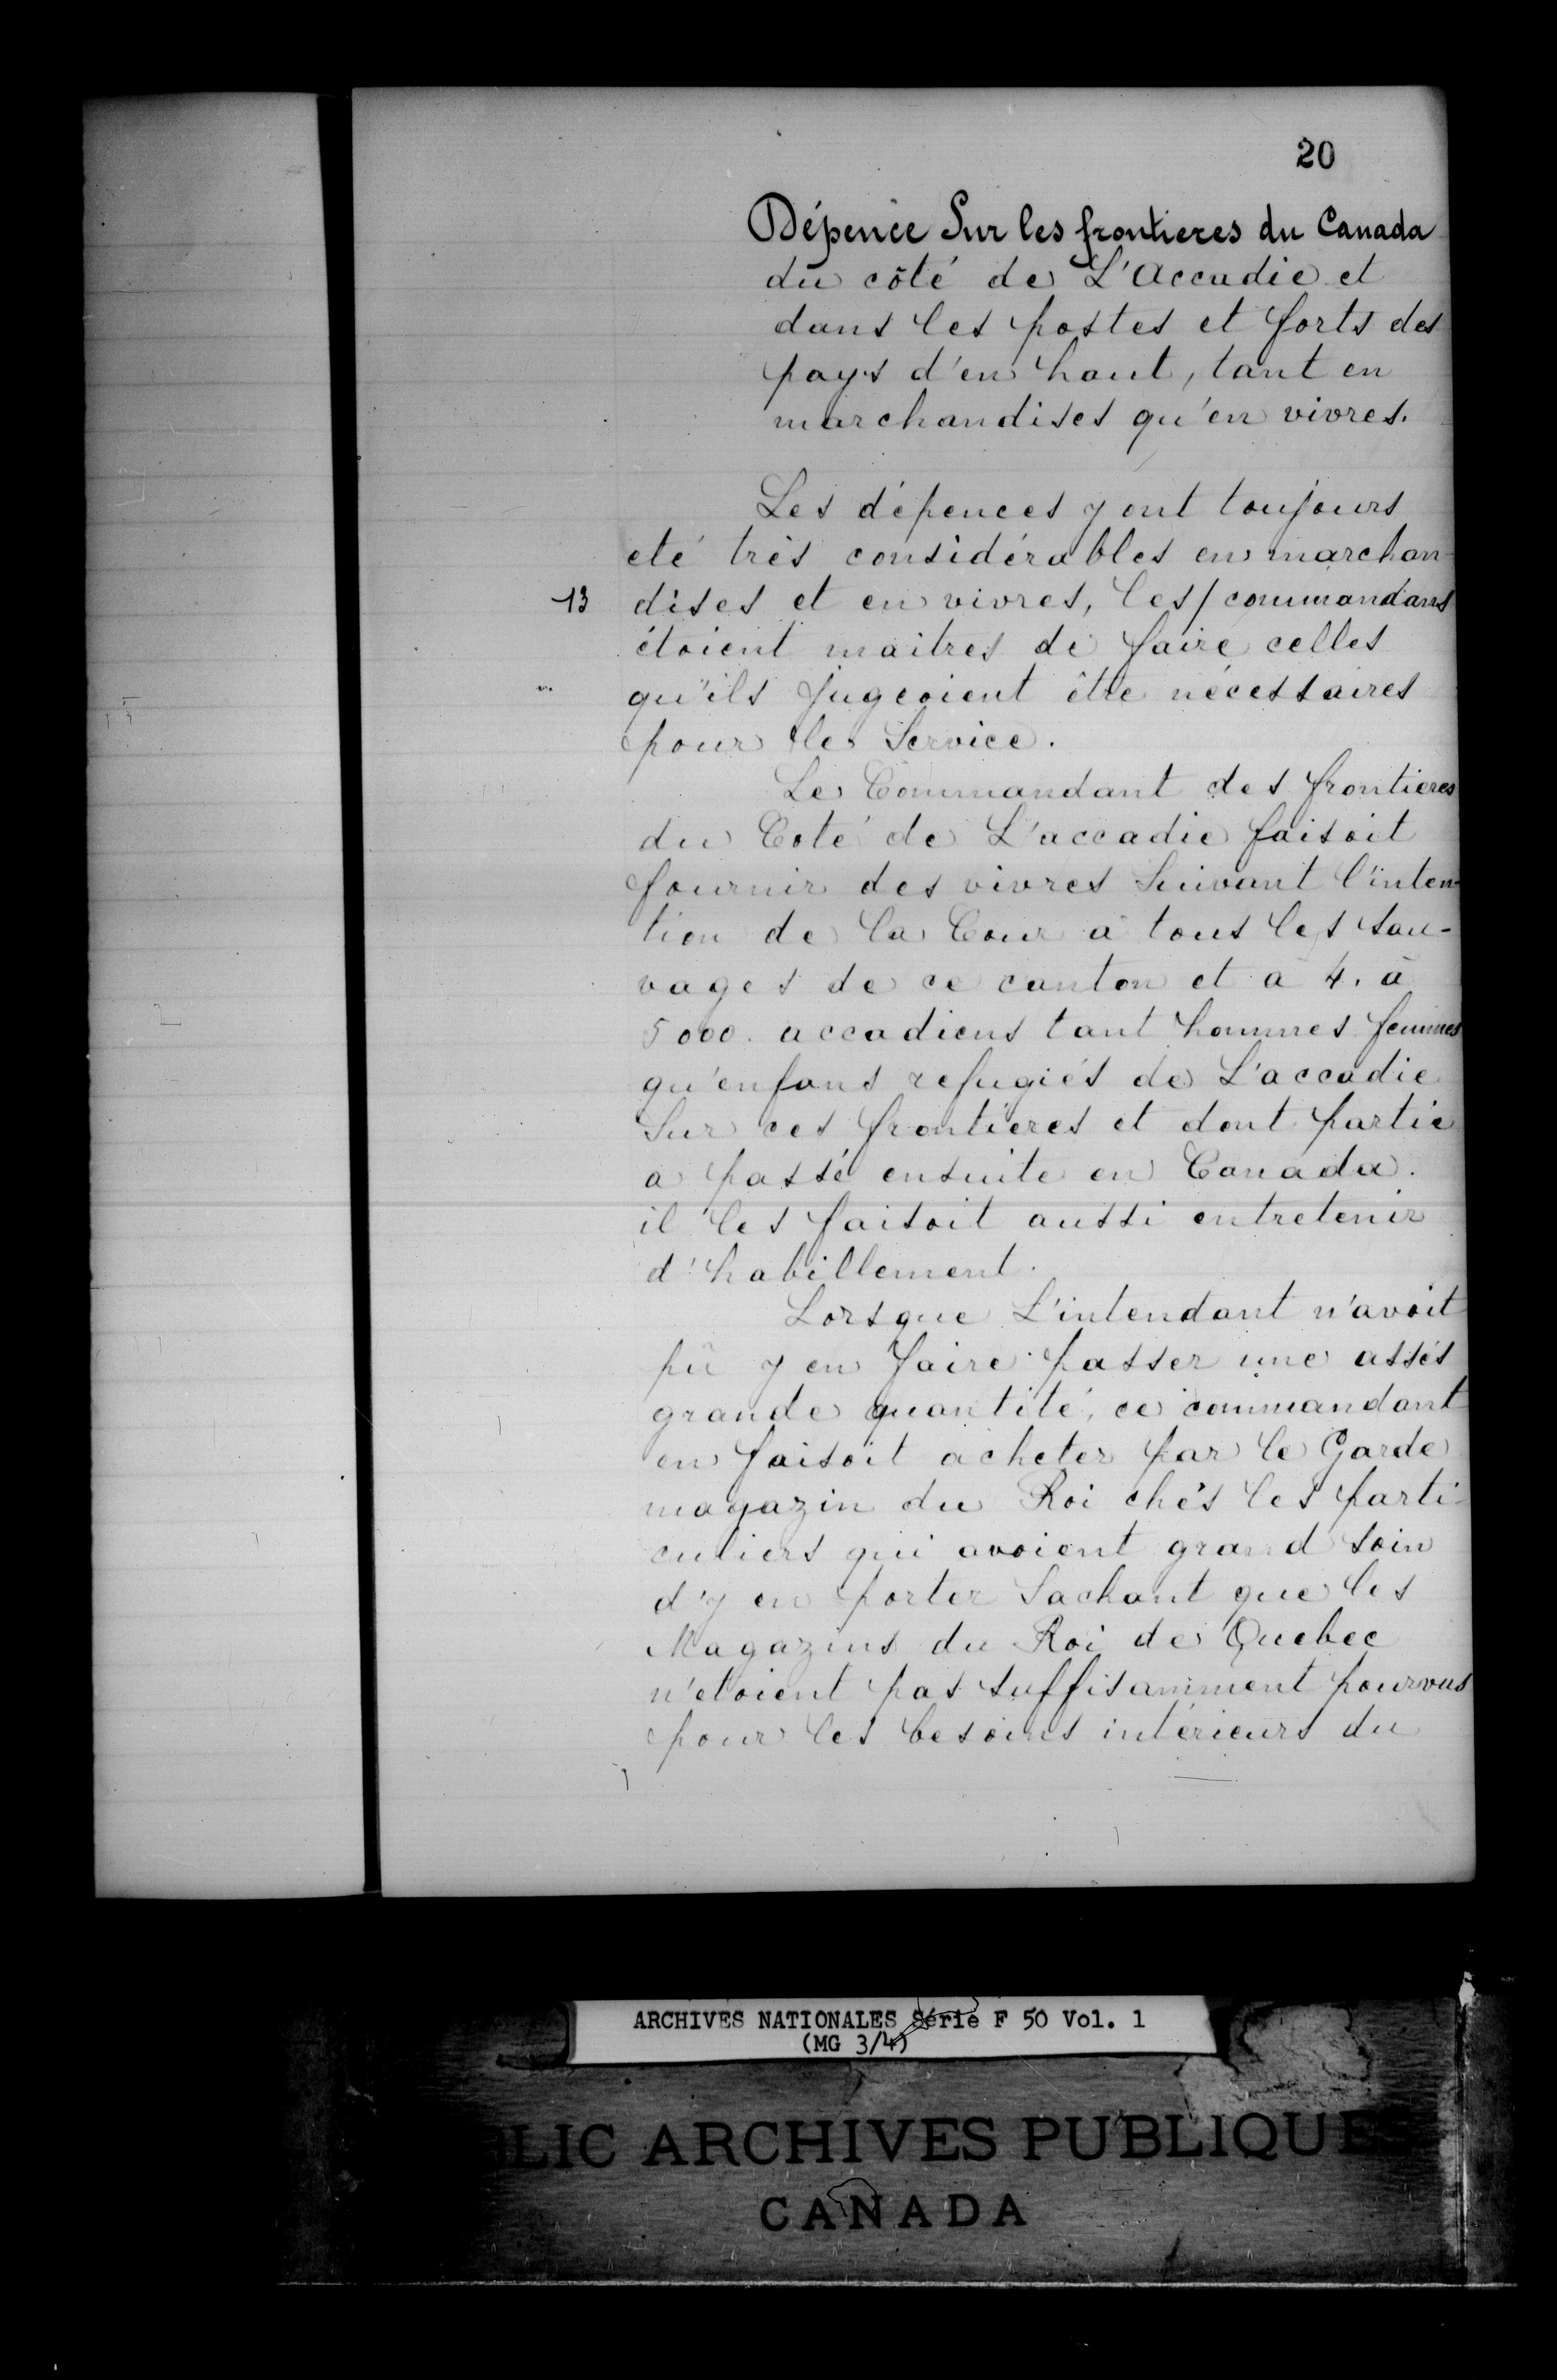 20
Dépence Sur les frontieres du Canada
du côté de L'Accadie et
dans les postes et forts des
pays d'en haut, tant en
marchandises qu'en vivres.
Les dépences y ont toujours
eté très considérables en marchan-
13 dises et en vivres, les/commandans
étoient maitres de faire celles
qu'ils jugeoient être nécessaires
pour le Service.
Le Commandant des frontieres
du Coté de L'accadie faisoit
fournir des vivres Suivant l'inten-
tion de la Cour à tous les sau-
vages de ce canton et à 4. à
5000. accadiens tant hommes femmes
qu'enfans refugiés de L'accadie
Sur ces frontieres et dont partie
a passé ensuite en Canada.
il les faisoit aussi entretenir
d'habillement.
Lorsque L'intendant n'avoit
pû y en faire passer une assés
grande quantité, ce commandant
en faisoit acheter par le Garde
magazin du Roi chés les parti-
culiers qui avoient grand soin
d'y en porter Sachant que les
Magazins du Roi de Quebec
n'etoient pas suffisamment pourvus
pour les besoins intérieurs du
ARCHIVES NATIONALES Série F 50 Vol. 1
(MG 3/4)
LIC ARCHIVES PUBLIQUES
CANADA